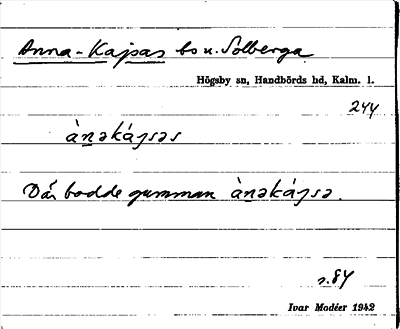 Anna-Kajsas bo u. Solberga
Högsby sn, Handbörds hd, Kalm. l.
244
ànəkájsəs
Där bodde gumman ànəkájsə.
s. 84
Ivar Modéer 1942